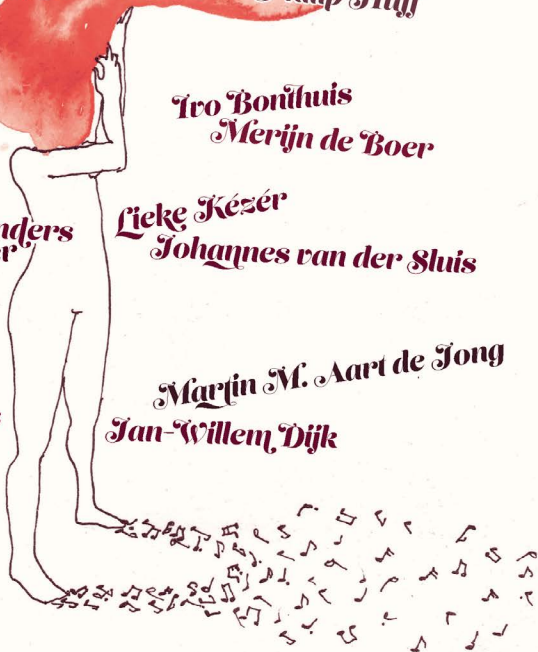 Huff
Ivo Bonthuis
Merijn de Boer
Lieke Kézér
Johannes van der Sluis
Martin M. Aart de Jong
Jan-Willem Dijk